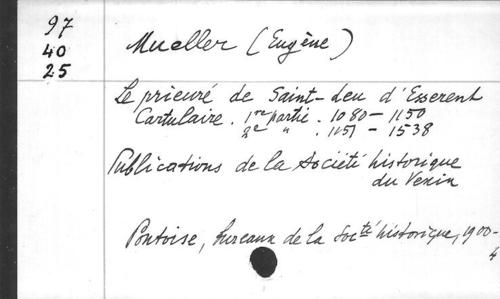 97
40
25
Mueller (Eugène)
Le prieuré de Saint-Leu d'Esserent
Cartulaire. 1re partie. 1080-1150
2e " . 1151-1538
Publications de la Société historique
du Vexin
Pontoise, bureaux de la Socté historique, 1900-
4